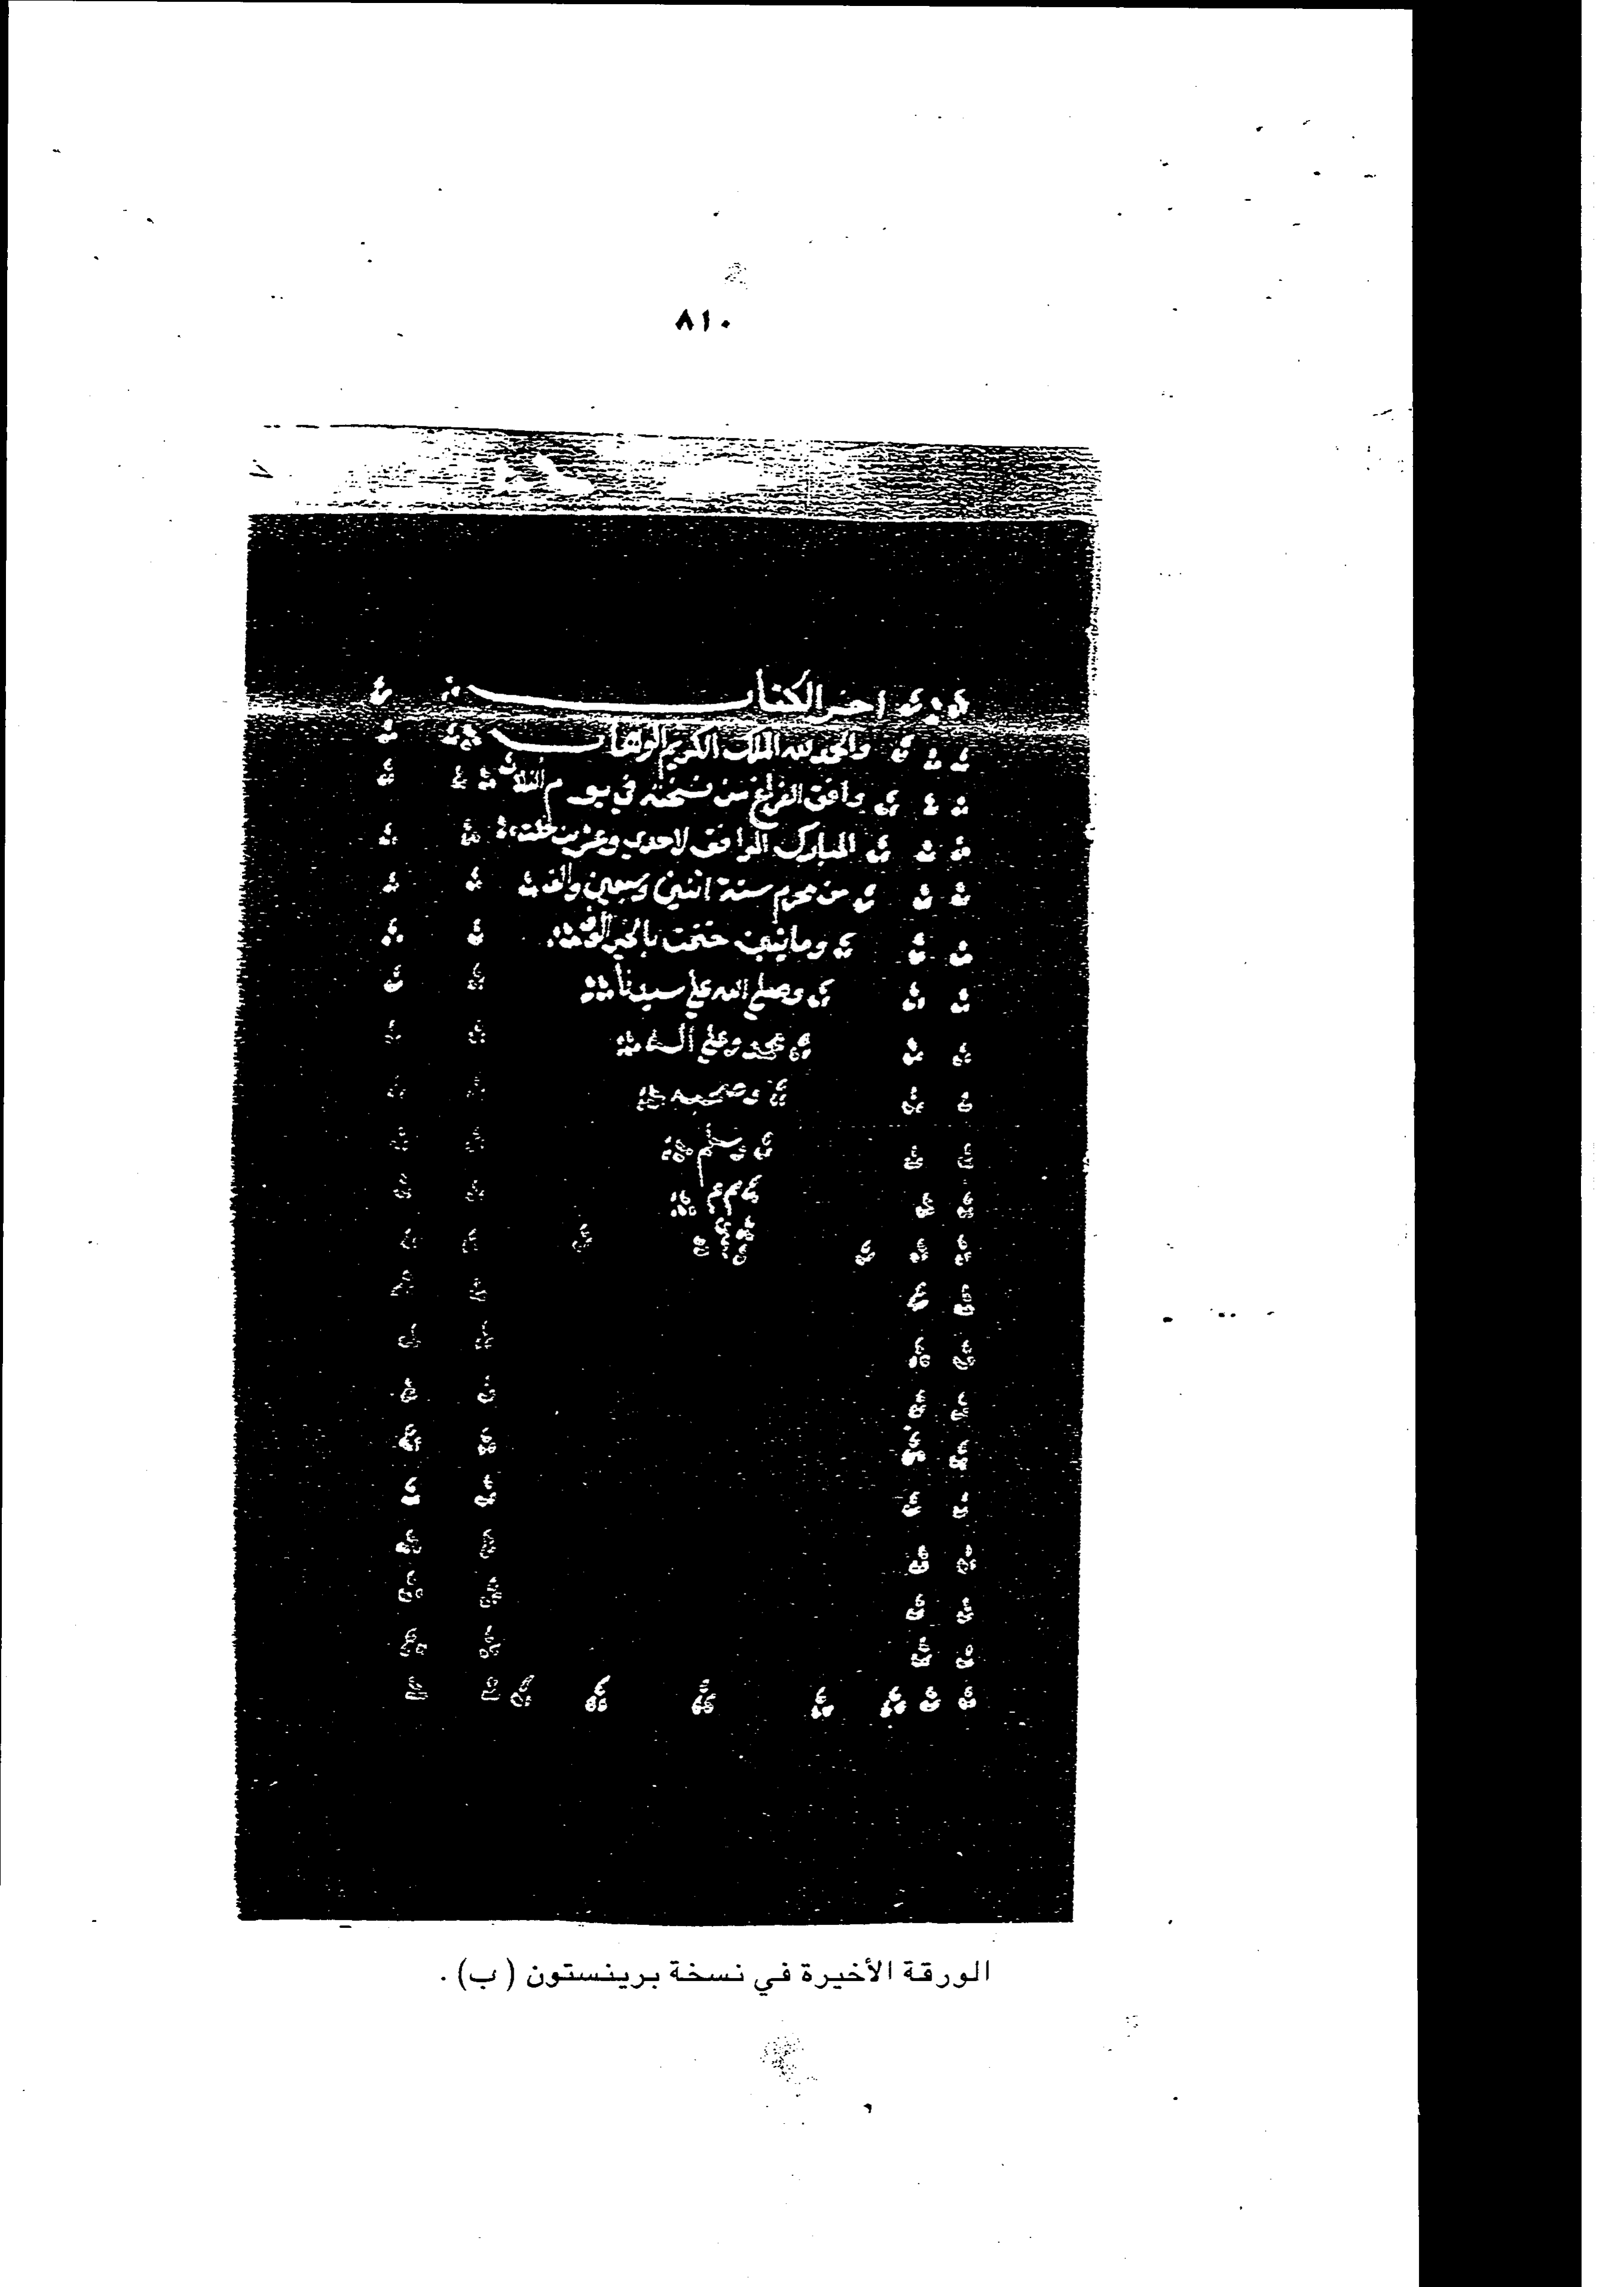 ٨١٠
اخر الكتاب
والحمد لله الملك الكريم الوهاب
وافق الفراغ من نسخته في يوم الثلاث
المبارك الموافق لاحدي وعشرين خلت
من محرم سنة اثنين وسبعين والف
ومايتين ختمت بالخير
وصلي الله علي سيدنا
محمد وعلي اله
وصحبه
وسلم
م م م
الورقة الأخيرة في نسخة برينستون (ب) .